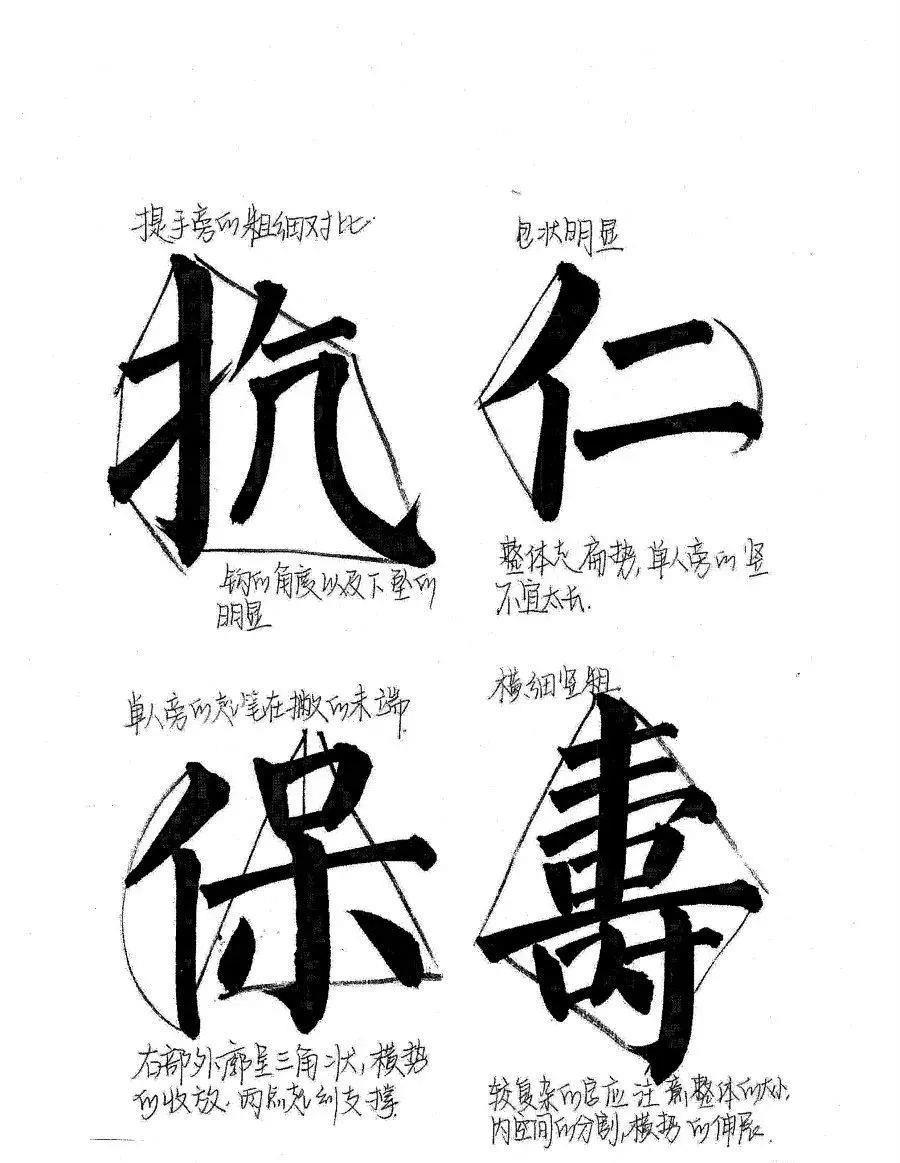 提手旁的粗细对比.
包状明显
抗
仁
钩的角度以及下坠的
明显
整体走扁势,单人旁的竖
不宜太长.
单人旁的起笔在撇的末端.
横细竖粗
保
壽
右部外廓呈三角状,横势
的收放.两点起到支撑.
较复杂的官应注意整体的大小,
内空间的分割,横势的伸展.